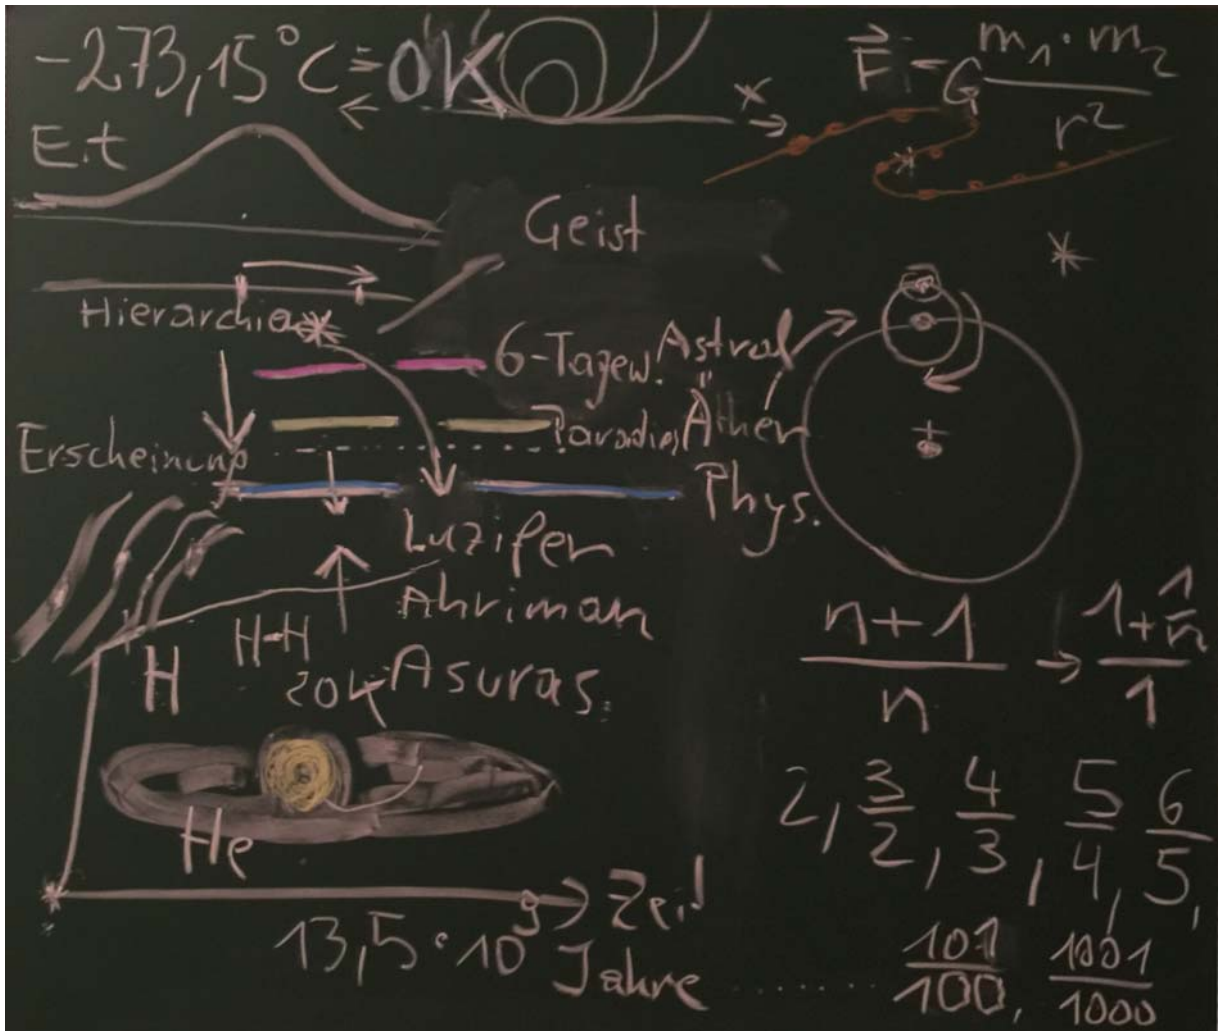 -273,15°C = 0K
F = G m₁·m₂
r²
E.t
Geist
Hierarchien
6-Tagew. Astral
Paradies Äther
Erscheinung
Phys.
Luzifer
Ahriman
Asuras.
H
H-H
20K
He
Zeit
13,5·10⁹ Jahre
n+1
n
→
1+1/n
1
2, 3/2, 4/3, 5/4, 6/5,
........ 101/100, 1001/1000